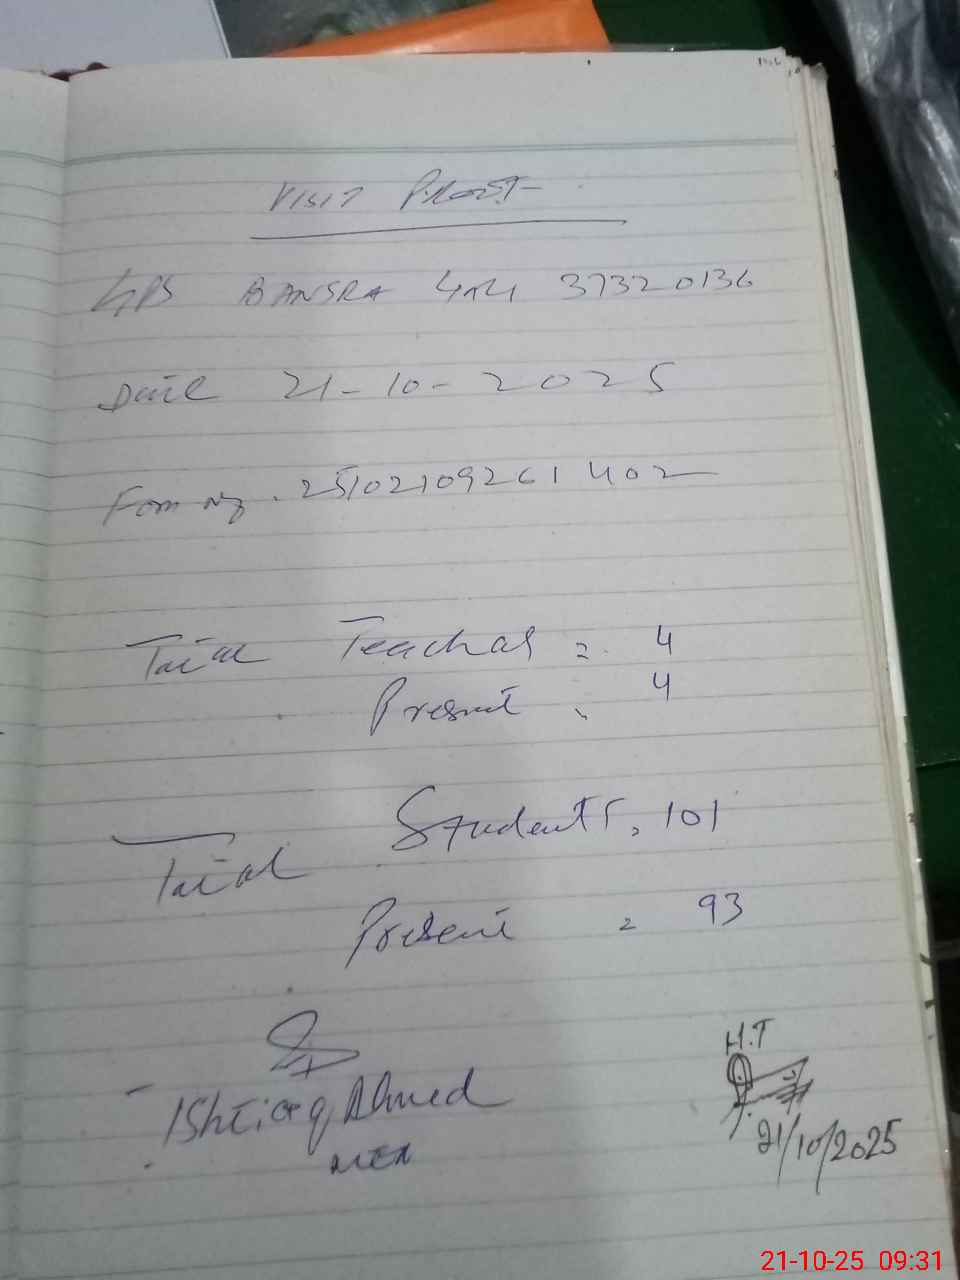 VISIT PROOF
GPS BANSRA 37320136
Date 21-10-2025
Form No. 25102109261402
Total Teachers = 4
Present = 4
Total Students = 101
Present = 93
Ishtiaq Ahmed
MEA
H.T
21/10/2025
21-10-25 09:31